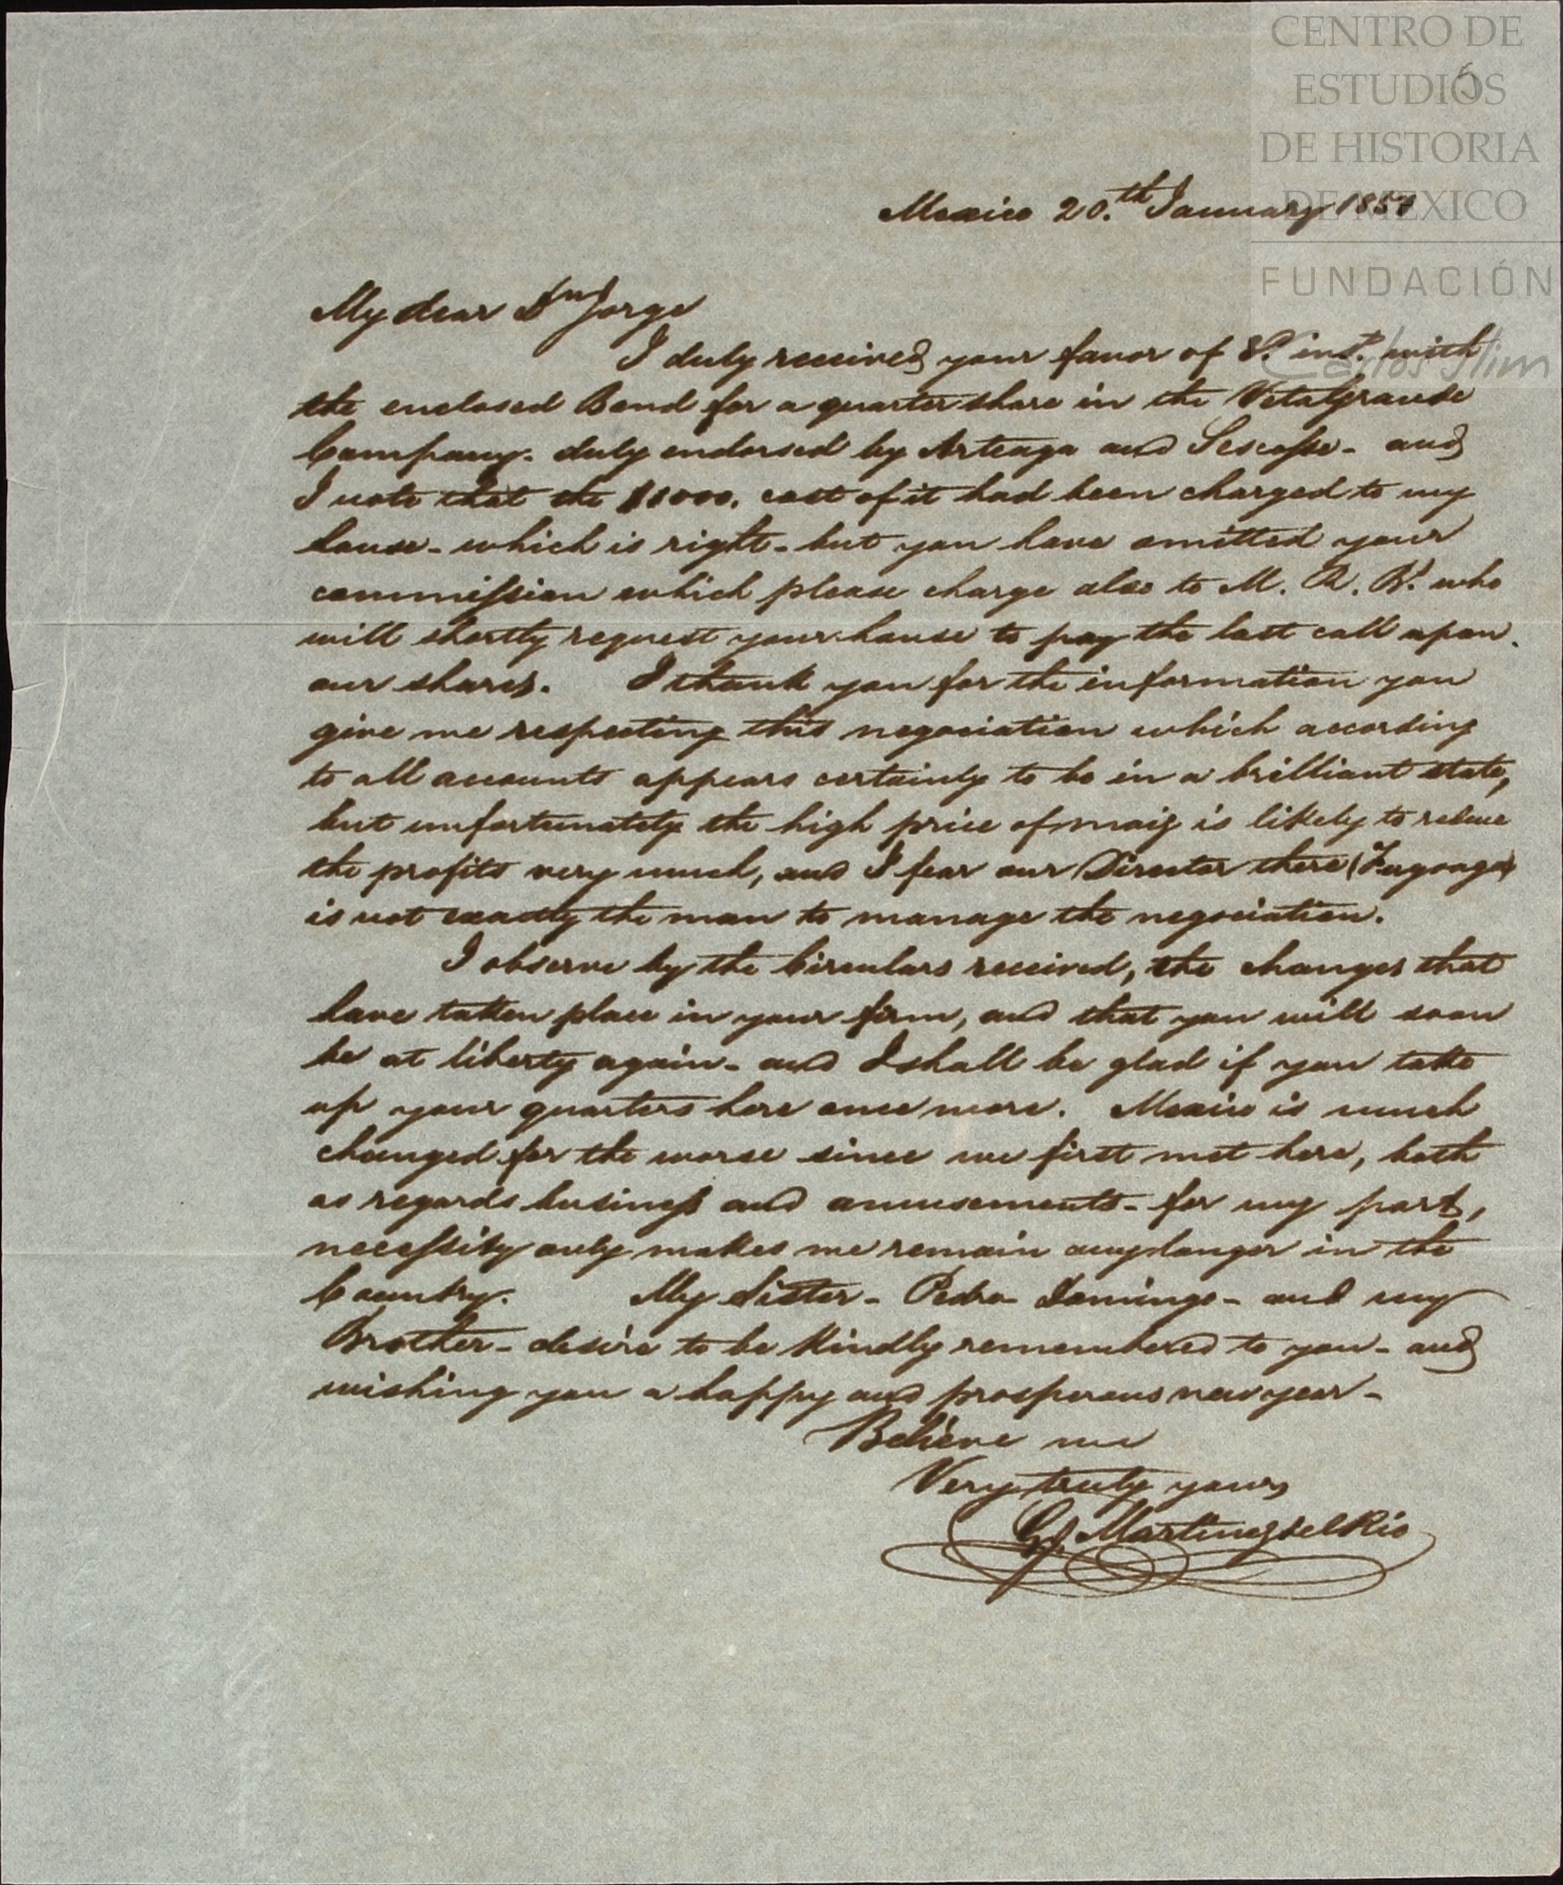 CENTRO DE
ESTUDIOS
DE HISTORIA
DE MEXICO
FUNDACIÓN
Carlos Slim
5
Mexico 20.th January 1851
My dear Dn Jorge
I duly received your favor of 8. inst. with
the enclosed Bond for a quarter share in the Vetagrande
Company. duly endorsed by Arteaga and Sescosse - and
I note that the $1000. cost of it had been charged to my
house - which is right - but you have omitted your
commission which please charge also to M. R. B. who
will shortly request your house to pay the last call upon
our shares. I thank you for the information you
give me respecting this negociation which according
to all accounts appears certainly to be in a brilliant state,
but unfortunately the high price of maiz is likely to reduce
the profits very much, and I fear our Director there (Fagoaga)
is not exactly the man to manage the negociation.
I observe by the Circulars received, the changes that
have taken place in your firm, and that you will soon
be at liberty again - and I shall be glad if you take
up your quarters here once more. Mexico is much
changed for the worse since we first met here, both
as regards business and amusements - for my part,
necessity only makes me remain any longer in the
Country. My Sister - Pedro - Domingo - and my
Brother - desire to be kindly remembered to you - and
wishing you a happy and prosperous new year -
Believe me
Very truly yours
G. J. Martinez del Rio